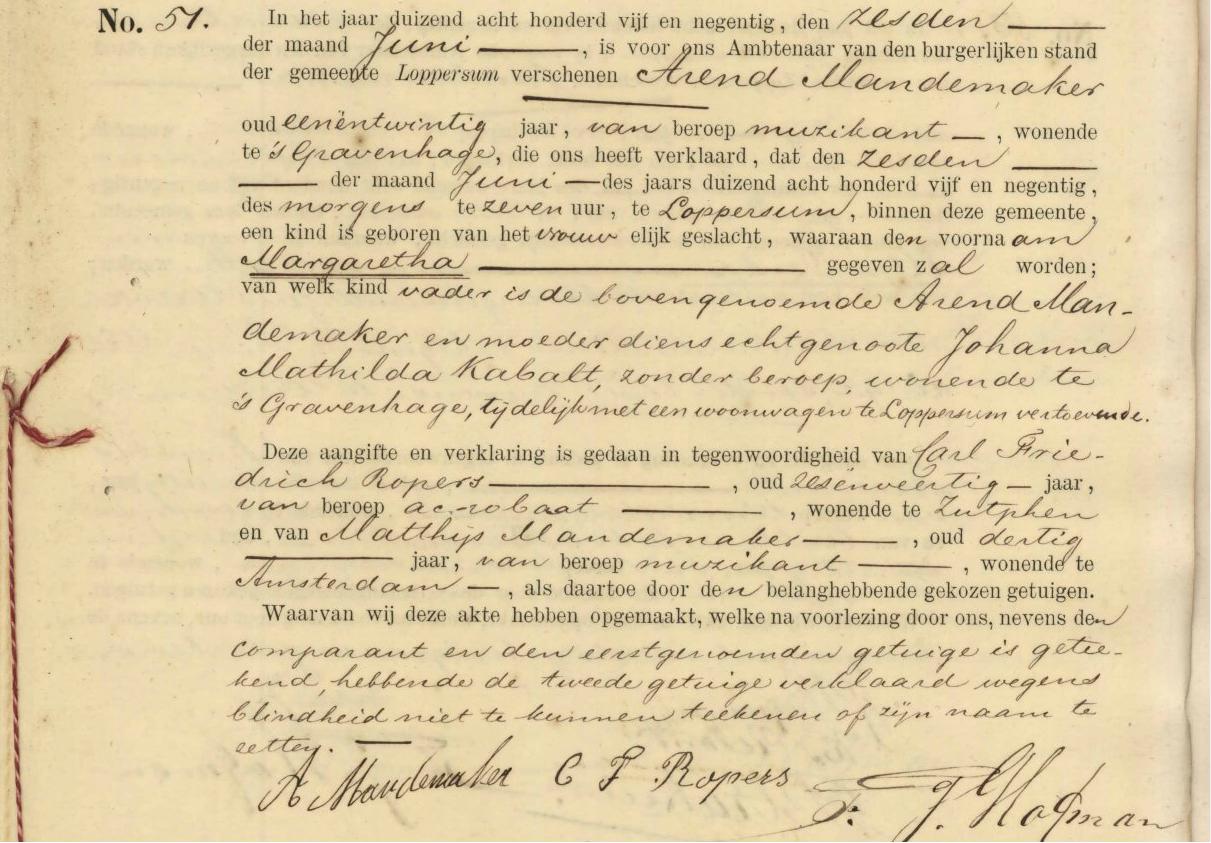 No. 51. In het jaar duizend acht honderd vijf en negentig, den zesden
der maand Juni, is voor ons Ambtenaar van den burgerlijken stand
der gemeente Loppersum verschenen Arend Mandemaker
oud eenentwintig jaar, van beroep muzikant, wonende
te 's Gravenhage, die ons heeft verklaard, dat den zesden
der maand Juni des jaars duizend acht honderd vijf en negentig,
des morgens te zeven uur, te Loppersum, binnen deze gemeente,
een kind is geboren van het vrouwelijk geslacht, waaraan den voornaam
Margaretha gegeven zal worden;
van welk kind vader is de bovengenoemde Arend Man-
demaker en moeder diens echtgenoote Johanna
Mathilda Kabalt, zonder beroep, wonende te
's Gravenhage, tijdelijk met een woonwagen te Loppersum vertoevende.
Deze aangifte en verklaring is gedaan in tegenwoordigheid van Carl Frie-
drich Ropers, oud zesenveertig jaar,
van beroep acrobaat, wonende te Zutphen
en van Matthijs Mandemaker, oud dertig
jaar, van beroep muzikant, wonende te
Amsterdam, als daartoe door den belanghebbende gekozen getuigen.
Waarvan wij deze akte hebben opgemaakt, welke na voorlezing door ons, nevens den
comparant en den eerstgenoemden getuige is getee-
kend, hebbende de tweede getuige verklaard wegens
blindheid niet te kunnen teekenen of zijn naam te
zetten.
A Mandemaker C F Ropers J. Hofman